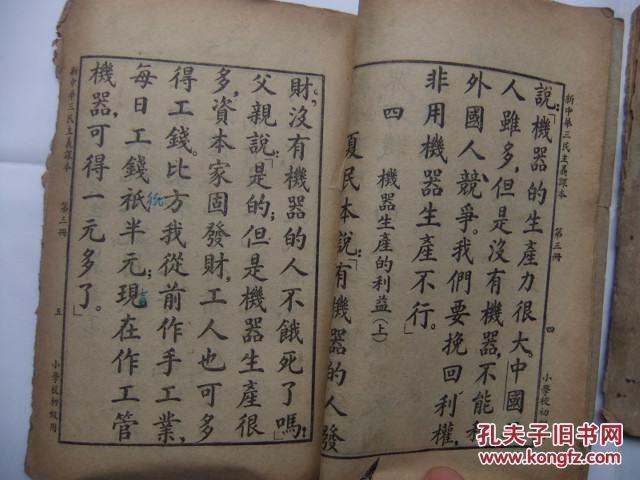 新中華三民主義課本 第三冊 四 小學校初
說：「機器的生產力很大。中國
人雖多，但是沒有機器，不能和
外國人競爭。我們要挽回利權，
非用機器生產不行。」
四 機器生產的利益（上）
夏民本說：「有機器的人發
財，沒有機器的人不餓死了嗎？」
父親說：「是的；但是機器生產很
多，資本家固發財，工人也可多
得工錢。比方我從前作手工業，
每日工錢祇半元；現在作工管
機器，可得一元多了。」
新中華三民主義課本 第三冊 五 小學校初級用
孔夫子旧书网
www.kongfz.com